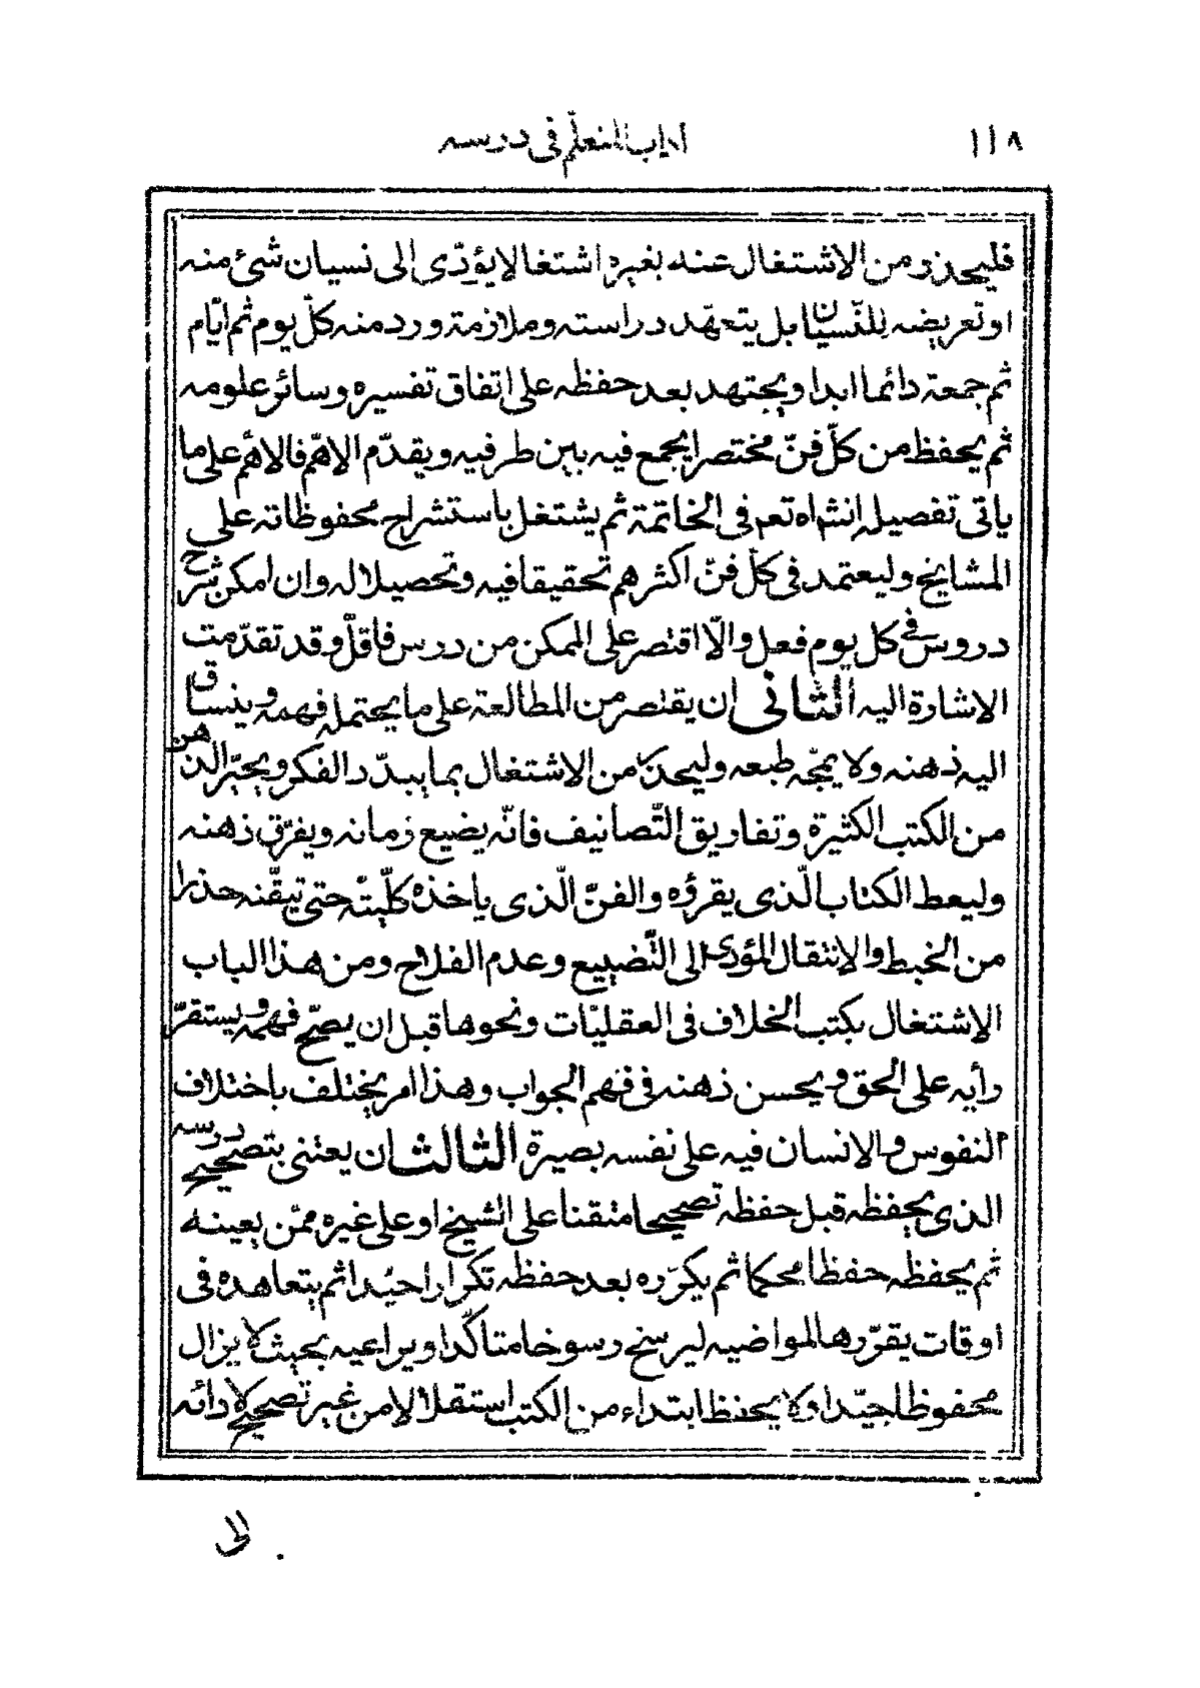 ١١٨
اداب المتعلّم فى درسه
فليحذر ومن الاشتغال عنه بغيره اشتغالا يؤدّى الى نسيان شئ منه
او تعريضه للنّسيان بل يتعهّد دراسته وملازمة ورد منه كلّ يوم ثم ايّام
ثم جمعة دائما ابدا ويجتهد بعد حفظه على اتفاق تفسيره وسائر علومه
ثم يحفظ من كلّ فنّ مختصرا يجمع فيه بين طرفيه ويقدّم الاهمّ فالاهمّ على ما
ياتى تفصيله انشاه تعم فى الخاتمة ثم يشتغل باستشراح محفوظاته على
المشايخ وليعتمد فى كلّ فنّ اكثرهم تحقيقا فيه وتحصيلا له وان امكن شرح
دروس فى كل يوم فعل والّا اقتصر على الممكن من درس فاقلّ وقد تقدّمت
الاشارة اليه الثانى ان يقتصر من المطالعة على ما يحتمله فهمه وينساق
اليه ذهنه ولا يمجّه طبعه وليحذر من الاشتغال بما يبدّد الفكر ويحيّر الذهن
من الكتب الكثيرة وتفاريق التّصانيف فانّه يضيع زمانه ويفرّق ذهنه
وليعط الكتاب الّذى يقرؤه والفنّ الّذى ياخذه كلّيته حتى تيقّنه حذرا
من الخبط والانتقال المؤدى الى التّضييع وعدم الفلاح ومن هذا الباب
الاشتغال بكتب الخلاف فى العقليّات ونحوها قبل ان يصحّ فهمه ويستقرّ
رأيه على الحق ويحسن ذهنه فى فهم الجواب وهذا امر يختلف باختلاف
النفوس والانسان فيه على نفسه بصيرة الثالث ان يعتنى بتصحيح درسه
الذى يحفظه قبل حفظه تصحيحا متقنا على الشيخ او على غيره ممّن يعينه
ثم يحفظه حفظا محكما ثم يكرّره بعد حفظه تكرارا جيّدا ثم يتعاهده فى
اوقات يقرّرها لمواضيه ليرسخ رسوخا متاكّدا ويراعيه بحيث لا يزال
محفوظا جيّدا ولا يحفظ ابتداء من الكتب استقلالا من غير تصحيح لادائه
الى